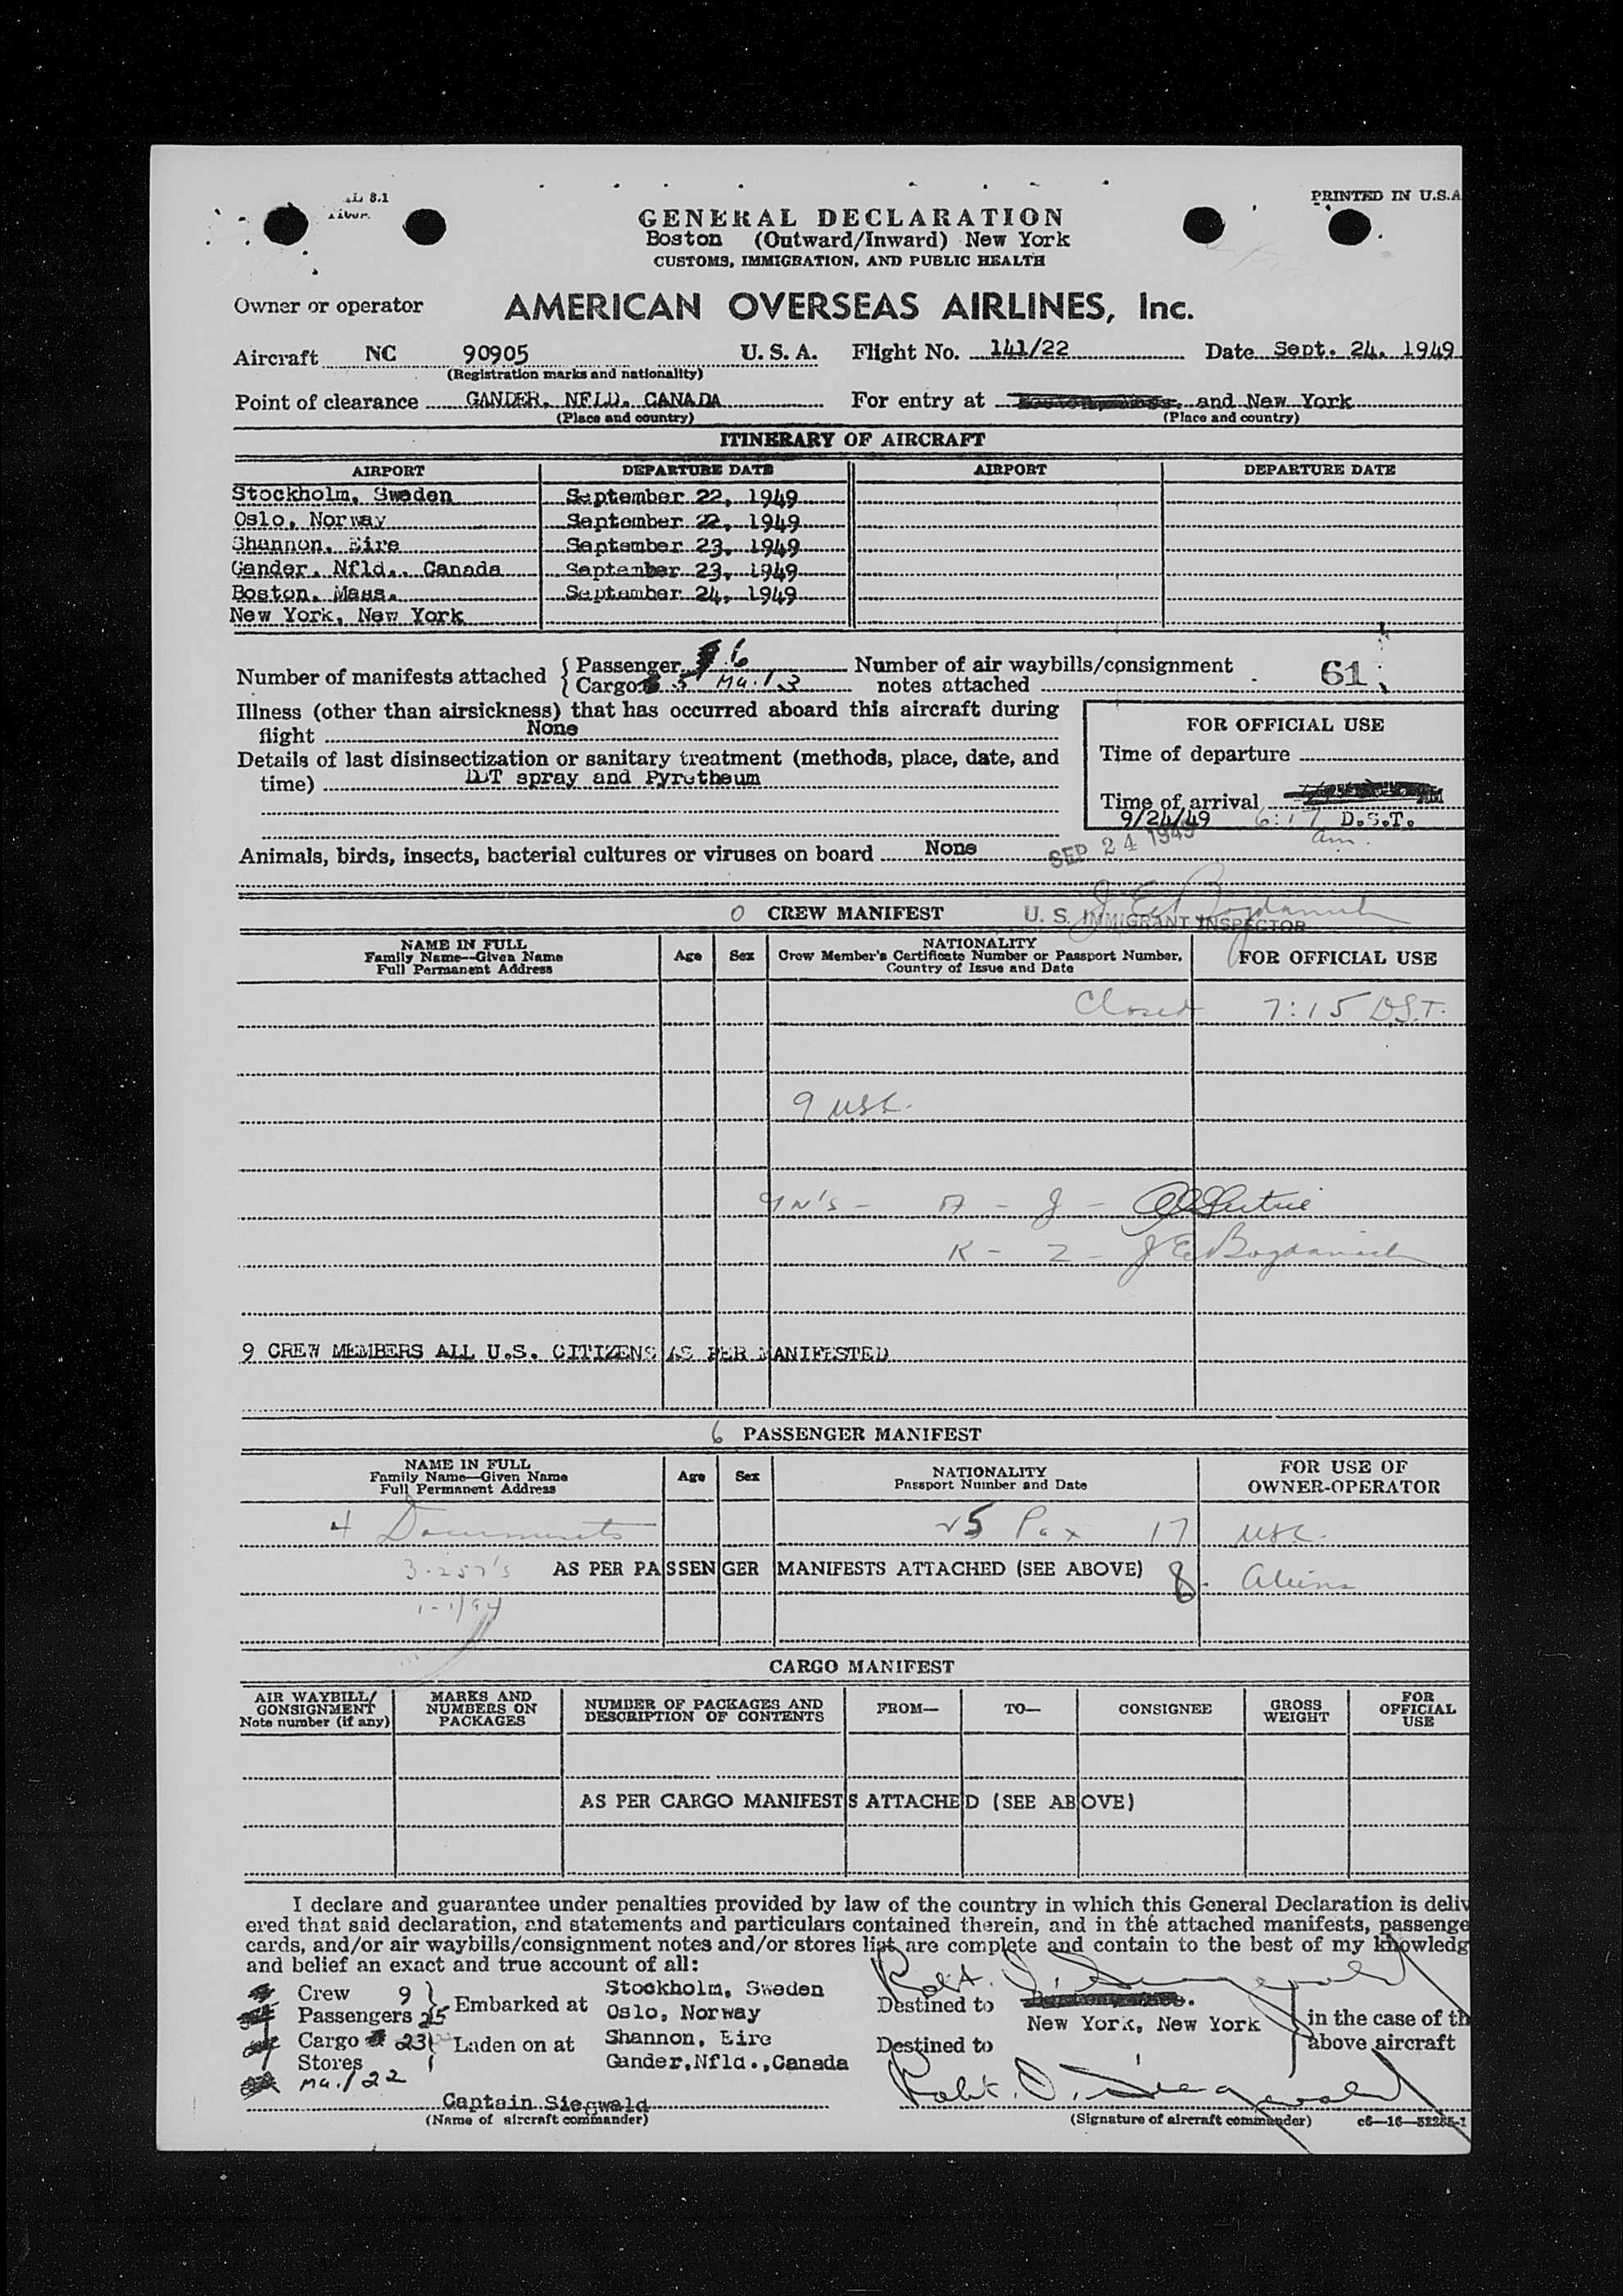 PRINTED IN U.S.A
GENERAL DECLARATION
Boston (Outward/Inward) New York
CUSTOMS, IMMIGRATION, AND PUBLIC HEALTH
Owner or operator AMERICAN OVERSEAS AIRLINES, Inc.
Aircraft NC 90905 U. S. A. Flight No. 141/22 Date Sept. 24, 1949
(Registration marks and nationality)
Point of clearance GANDER, NFLD. CANADA For entry at and New York
(Place and country) (Place and country)
ITINERARY OF AIRCRAFT
AIRPORT DEPARTURE DATE AIRPORT DEPARTURE DATE
Stockholm, Sweden September 22, 1949
Oslo, Norway September 22, 1949
Shannon, Eire September 23, 1949
Gander, Nfld., Canada September 23, 1949
Boston, Mass. September 24, 1949
New York, New York
Number of manifests attached { Passenger 6 Number of air waybills/consignment 61
{ Cargo 5 Mail 3 notes attached
Illness (other than airsickness) that has occurred aboard this aircraft during
flight None
FOR OFFICIAL USE
Details of last disinsectization or sanitary treatment (methods, place, date, and
time) DDT spray and Pyretheum
Time of departure
Time of arrival
9/24/49 6:17 D.S.T.
am.
Animals, birds, insects, bacterial cultures or viruses on board None
SEP 24 1949
J E Bogdanich
0 CREW MANIFEST U. S. IMMIGRANT INSPECTOR
NAME IN FULL
Family Name--Given Name
Full Permanent Address
Age Sex
NATIONALITY
Crew Member's Certificate Number or Passport Number,
Country of Issue and Date
FOR OFFICIAL USE
Closed 7:15 DST.
9 USC.
A - J -
K - Z - J E Bogdanich
9 CREW MEMBERS ALL U.S. CITIZENS AS PER MANIFESTED
6 PASSENGER MANIFEST
NAME IN FULL
Family Name—Given Name
Full Permanent Address
Age Sex
NATIONALITY
Passport Number and Date
FOR USE OF
OWNER-OPERATOR
4 Documents 25 Pax 17 USC.
3-257's AS PER PASSENGER MANIFESTS ATTACHED (SEE ABOVE) 8. Aliens
CARGO MANIFEST
AIR WAYBILL/
CONSIGNMENT
Note number (if any)
MARKS AND
NUMBERS ON
PACKAGES
NUMBER OF PACKAGES AND
DESCRIPTION OF CONTENTS
FROM— TO— CONSIGNEE
GROSS
WEIGHT
FOR
OFFICIAL
USE
AS PER CARGO MANIFESTS ATTACHED (SEE ABOVE)
I declare and guarantee under penalties provided by law of the country in which this General Declaration is deliv
ered that said declaration, and statements and particulars contained therein, and in the attached manifests, passenge
cards, and/or air waybills/consignment notes and/or stores list are complete and contain to the best of my knowledg
and belief an exact and true account of all:
Crew 9 } Embarked at Stockholm, Sweden
Passengers 25 Oslo, Norway
Destined to
New York, New York } in the case of th
above aircraft
Cargo 23 { Laden on at Shannon, Eire
Stores Gander,Nfld.,Canada
Destined to
Mail 22
Captain Siegwald
(Name of aircraft commander)
Robt. O. Siegwald
(Signature of aircraft commander) c6—16—52255-1